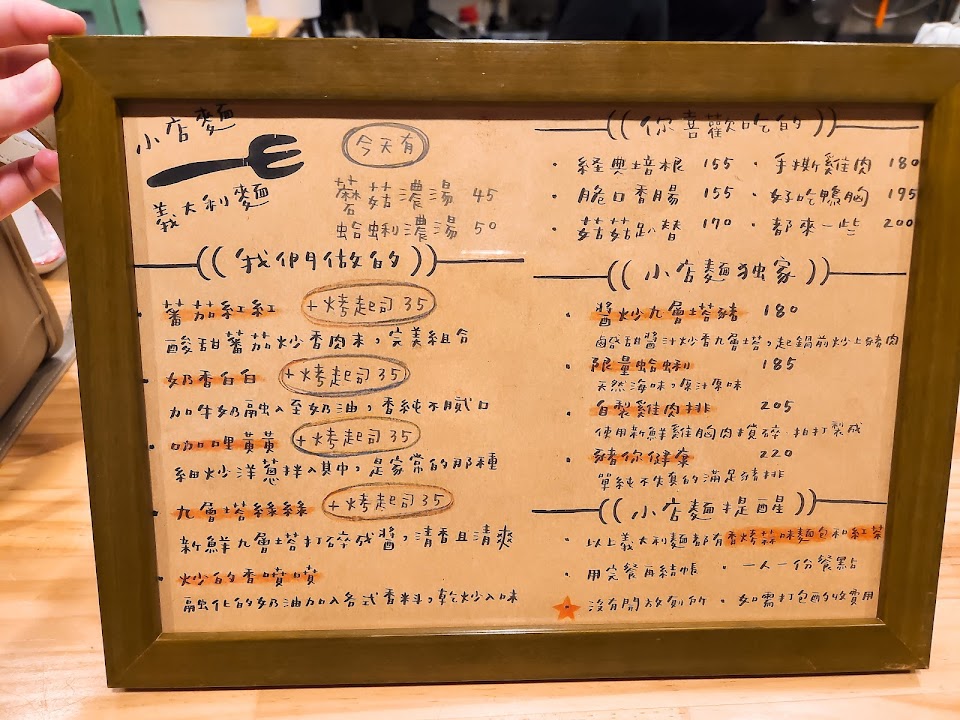 小店麵
義大利麵
今天有
蘑菇濃湯 45
蛤蜊濃湯 50
((我們做的))
· 蕃茄紅紅 +烤起司35
酸甜蕃茄炒香肉末，完美組合
· 奶香白白 +烤起司35
加牛奶融入至奶油，香純不膩口
· 咖哩黃黃 +烤起司35
細炒洋蔥拌入其中，是家常的那種
· 九層塔綠綠 +烤起司35
新鮮九層塔打碎成醬，清香且清爽
· 炒的香噴噴
融化的奶油加入各式香料，乾炒入味
((你喜歡吃的))
· 経典培根 155 · 手撕雞肉 180
· 脆口香腸 155 · 好吃鴨胸 195
· 菇菇趴替 170 · 都來一些 200
((小店麵独家))
· 醬炒九層塔豬 180
鹵甜醬汁炒香九層塔，起鍋前炒上豬肉
· 限量蛤蜊 185
天然海味，原汁原味
· 自製雞肉排 205
使用新鮮雞胸肉搗碎 拍打製成
· 豬你健康 220
單純不失真的滿足豬排
((小店麵提醒))
· 以上義大利麵都有香烤蒜味麵包和紅茶
· 用完餐再結帳 · 一人一份餐點
★ 沒有開放廁所 · 如需打包酌收費用